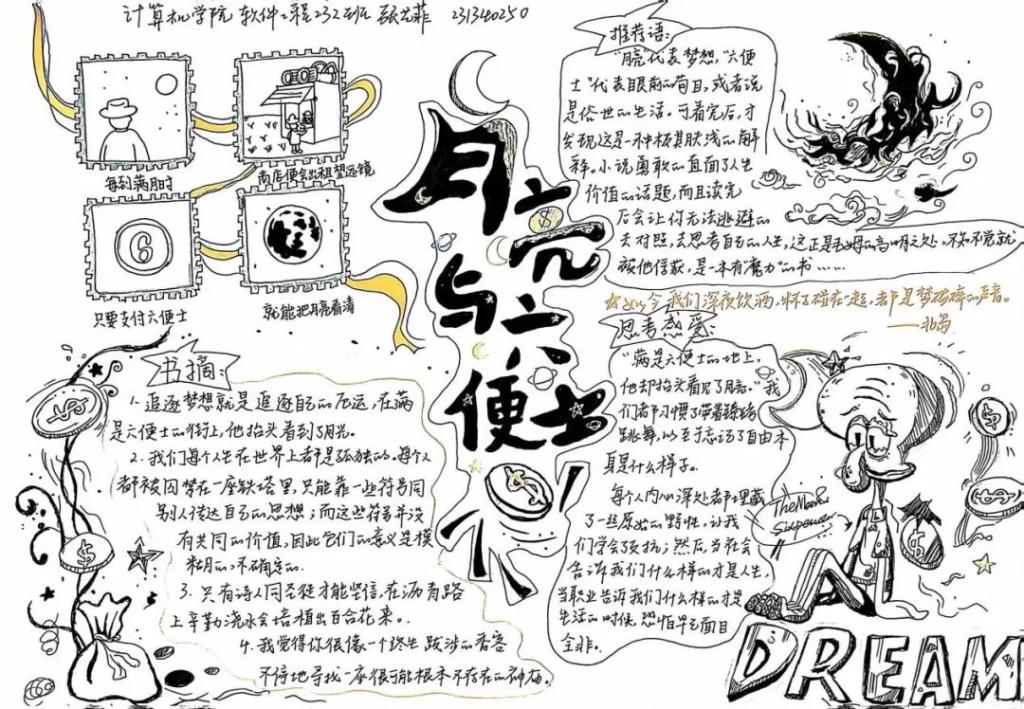 计算机学院 软件工程232班 张艺菲 231340250
每到满月时
商店便会出租望远镜
只要支付六便士
就能把月亮看清
6
月亮与六便士
推荐语:
"月亮"代表梦想,"六便
士"代表眼前的苟且,或者说
是俗世的生活。可看完后,才
发现这是一种极其肤浅的解
释。小说勇敢的直面了人生
价值的话题,而且读完
后会让你无法逃避的
去对照,去思考自己的人生,这正是毛姆的高明之处,不知不觉就
被他俘获,是一本有"魔力"的书……
如今我们深夜饮酒,杯子碰在一起,都是梦破碎的声音。
——北岛
书摘:
1. 追逐梦想就是追逐自己的厄运,在满
是六便士的街上,他抬头看到了月光。
2. 我们每个人生在世界上都是孤独的。每个人
都被囚禁在一座铁塔里,只能靠一些符号同
别人传达自己的思想;而这些符号并没
有共同的价值,因此它们的意义是模
糊的、不确定的。
3. 只有诗人同圣徒才能坚信,在沥青路
上辛勤浇水会培植出百合花来。
4. 我觉得你很像一个终生跋涉的香客
不停地寻找一座很可能根本不存在的神庙。
思考感受:
"满是六便士的地上,
他却抬头看见了月亮。"我
们都习惯了带着镣铐
跳舞,以至于忘记了自由本
身是什么样子。
每个人内心深处都埋藏
了一些原始的野性,让我
们学会了反抗;然后,当社会
告诉我们什么样的才是人生,
当职业告诉我们什么样的才是
生活的时候,恐怕早已面目
全非。
The Moon &
Sixpence
DREAM